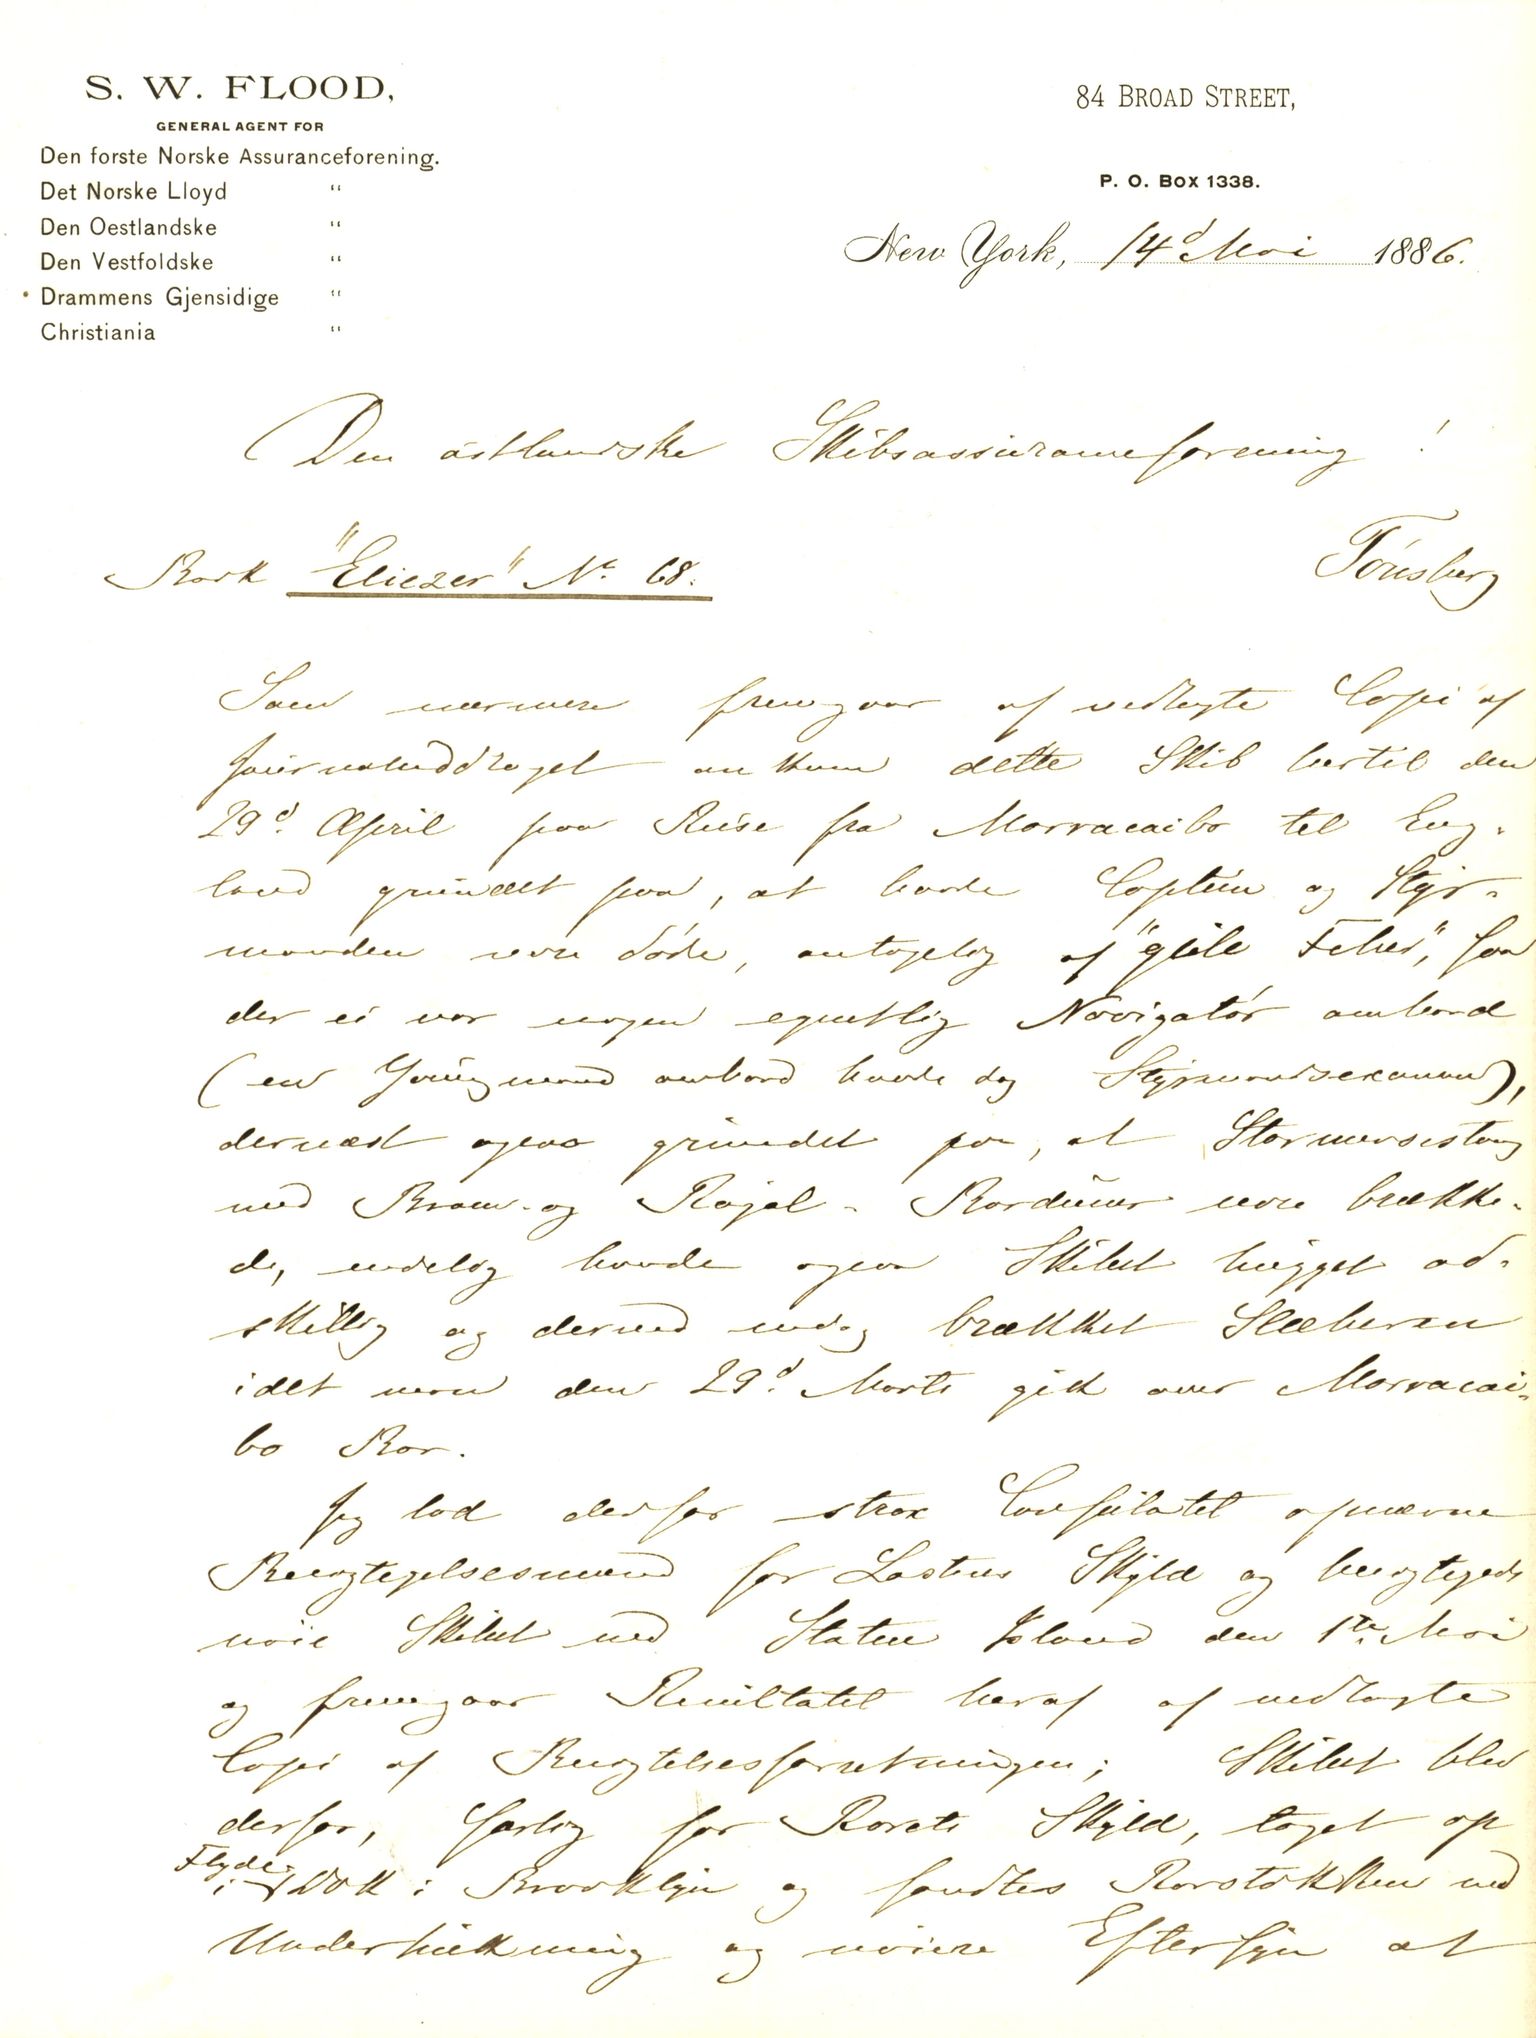 S. W. FLOOD,
GENERAL AGENT FOR
Den forste Norske Assuranceforening.
Det Norske Lloyd "
Den Oestlandske "
Den Vestfoldske "
Drammens Gjensidige "
Christiania "
84 BROAD STREET,
P. O. BOX 1338.
New York, 14d Mai 1886.
Den östlandske Skibsassuranceforening!
Tönsberg
Bark "Eliezer" No. 68.
Som nærmere fremgaar af vedlagte Copi af
Journaluddraget ankom dette Skib hertil den
29d. April paa Reise fra Marracaibo til Eng-
land grundet paa, at baade Captein og Styr-
manden vare döde, antagelig af "gule Feber", saa
der ei var nogen egentlig Navigatör ombord
(en Youngmand ombord havde dog Styrmandsexamen),
dernæst ogsaa grundet paa, at Stormersestang
med Bram- og Røjel- Barduner vare brække-
de, endelig havde ogsaa Skibet hugget ad-
skillig og derved endog brækket Slæberen
idet man den 29d. Marts gik over Marracai-
bo Bar.
Jeg lod derfor strax Consulatet opnævne
Besigtigelsesmænd for Lastens Skyld og besigtigede
Skibet ved Staten Island den 1te. Mai
og fremgaar Resultatet heraf af vedlagte
Copi af Besigtelsesforretningen; Skibet blev
derfor, særlig for Rorets Skyld, taget op
i Flyde-Dok i Brooklyn og fandtes Rorstokken ved
Underhukning og nöiere Eftersyn at